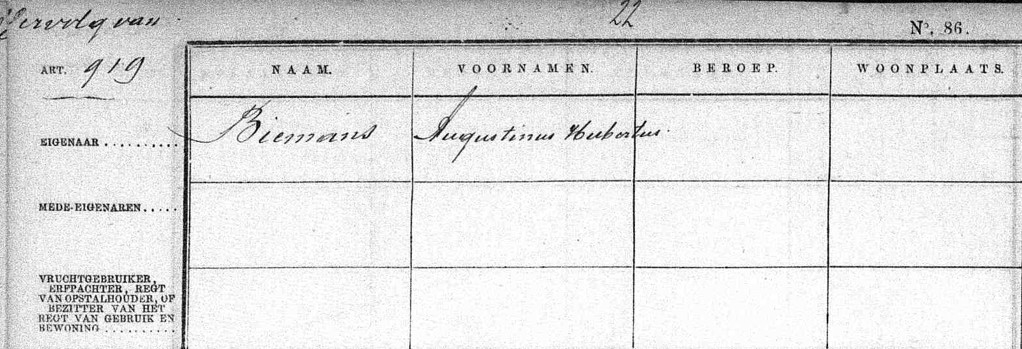 Vervolg van 22
No. 86.
ART. 919
NAAM. VOORNAMEN. BEROEP. WOONPLAATS.
EIGENAAR .......... Biemans Augustinus Hubertus.
MEDE-EIGENAREN.....
VRUCHTGEBRUIKER,
ERFPACHTER, REGT
VAN OPSTALHOUDER, OF
BEZITTER VAN HET
REGT VAN GEBRUIK EN
BEWONING ..........